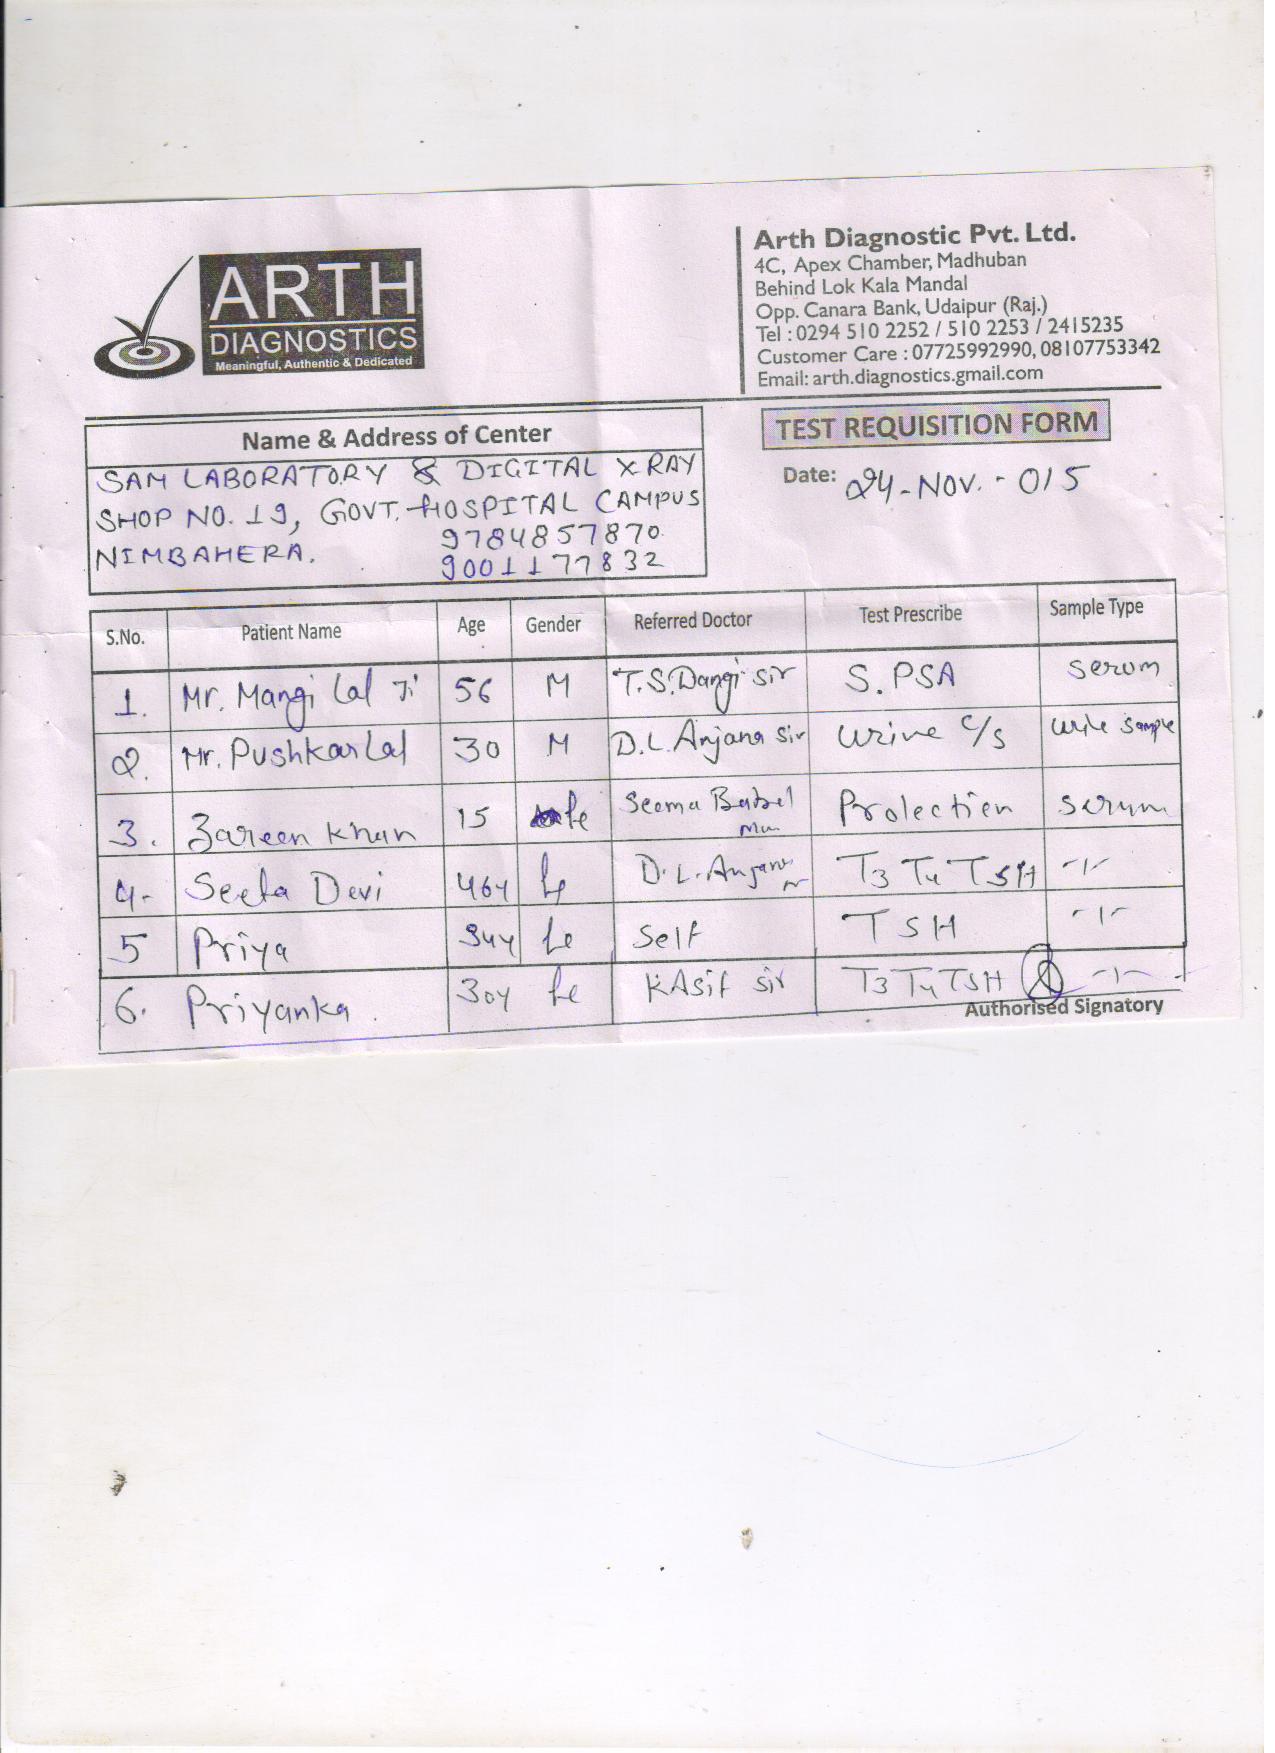 ARTH
DIAGNOSTICS
Meaningful, Authentic & Dedicated
Arth Diagnostic Pvt. Ltd.
4C, Apex Chamber, Madhuban
Behind Lok Kala Mandal
Opp. Canara Bank, Udaipur (Raj.)
Tel : 0294 510 2252 / 510 2253 / 2415235
Customer Care : 07725992990, 08107753342
Email: arth.diagnostics.gmail.com
Name & Address of Center
SAM LABORATORY & DIGITAL X RAY
SHOP NO. 19, GOVT. HOSPITAL CAMPUS
NIMBAHERA. 9784857870
9001177832
TEST REQUISITION FORM
Date: 24-NOV.-015
S.No. Patient Name Age Gender Referred Doctor Test Prescribe Sample Type
1. Mr. Mangi Lal Ji 56 M T.S.Dangi sir S. PSA serum
2. Mr. Pushkar Lal 30 M D.L. Anjana sir Urine C/s Urine sample
3. Zareen Khan 15 fe Seema Prolectien serum
4. Seeta Devi 46y fe D.L. Anjana T3 T4 TSH -1-
5 Priya 34y fe Self TSH -1-
6. Priyanka 30y fe KAsif sir T3 T4 TSH -1-
Authorised Signatory